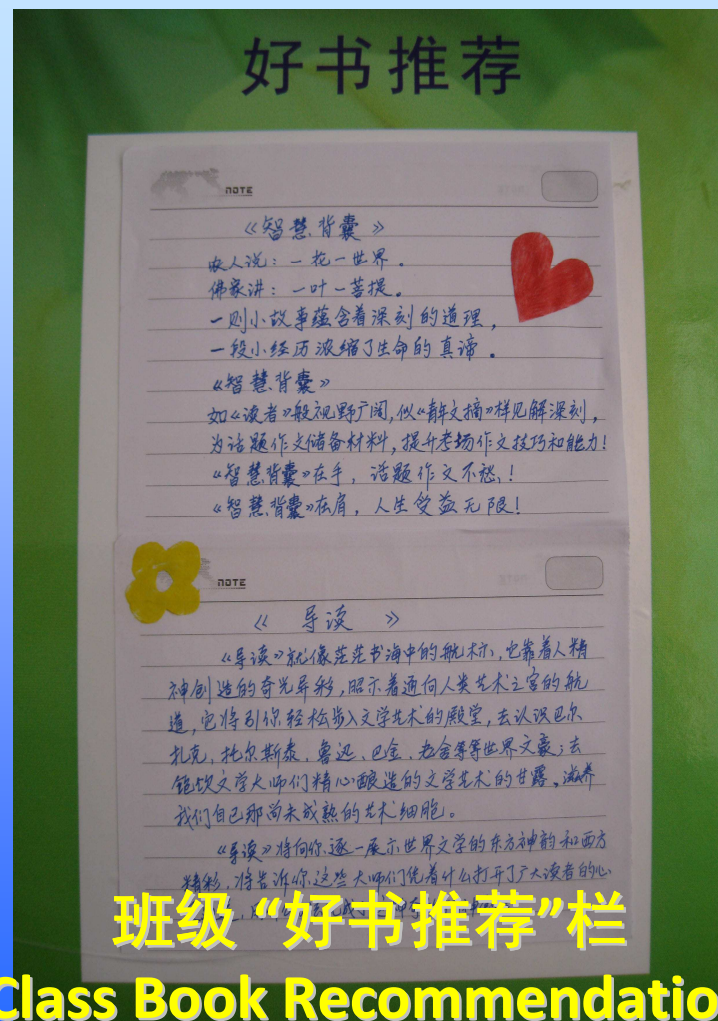 好书推荐
NOTE
《智慧背囊》
农人说：一花一世界。
佛家讲：一叶一菩提。
一则小故事蕴含着深刻的道理，
一段小经历浓缩了生命的真谛。
《智慧背囊》
如《读者》般视野广阔，似《青年文摘》样见解深刻，
为话题作文储备材料，提升考场作文技巧和能力！
《智慧背囊》在手，话题作文不愁！
《智慧背囊》在肩，人生受益无限！
NOTE
《导读》
《导读》就像茫茫书海中的航标，它靠着人精
神创造的奇光异彩，昭示着通向人类艺术之宫的航
道，它将引你轻松步入文学艺术的殿堂，去认识巴尔
扎克、托尔斯泰、鲁迅、巴金、老舍等等世界文豪；去
饱饮文学大师们精心酿造的文学艺术的甘露，滋养
我们自己那尚未成熟的艺术细胞。
《导读》将向你逐一展示世界文学的东方神韵和西方
精彩，将告诉你这些大师们凭着什么打开了广大读者的心
班级 “好书推荐”栏
Class Book Recommendatio